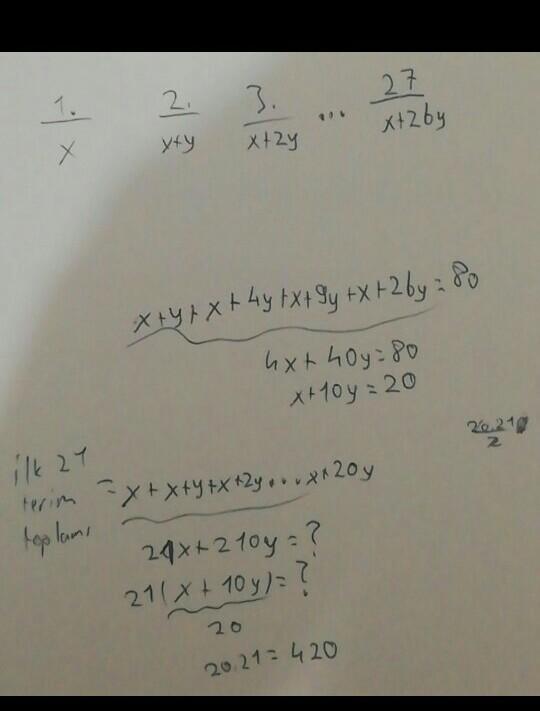 1. 2. 3. ... 27
x x+y x+2y x+26y
x+y+x+4y+x+9y+x+26y=80
4x+40y=80
x+10y=20
20.21
2
ilk 21
terim
toplamı
= x+x+y+x+2y...x+20y
21x+210y=?
21(x+10y)=?
20
20.21=420